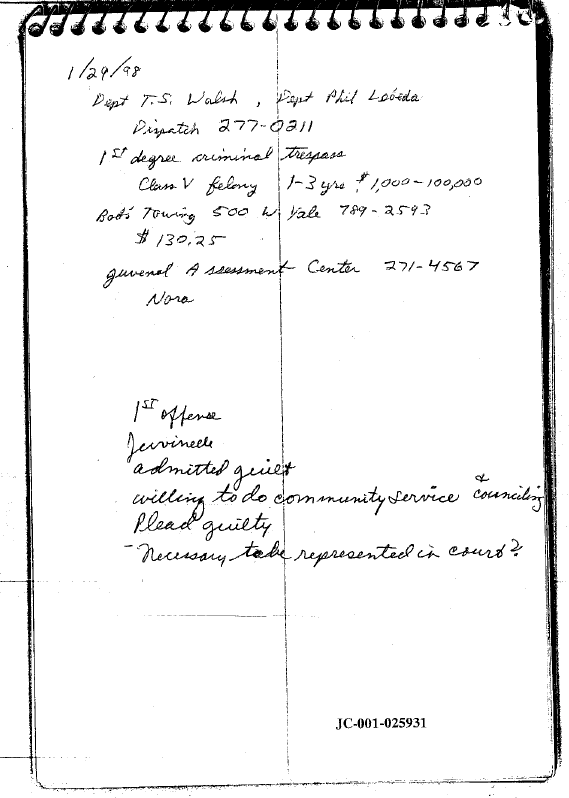 1/29/98
Dept T.S. Walsh, Dept Phil Lebeda
Dispatch 277-0211
1ST degree criminal trespass
Class V felony 1-3 yrs, $1,000-100,000
Bob's Towing 500 W. Yale 789-2593
$130.25
juvenal Assessment Center 271-4567
Nora
1ST offense
Juvinele
admitted guilt
willing to do community service & counciling
Plead guilty
- Necessary to be represented in court?
JC-001-025931